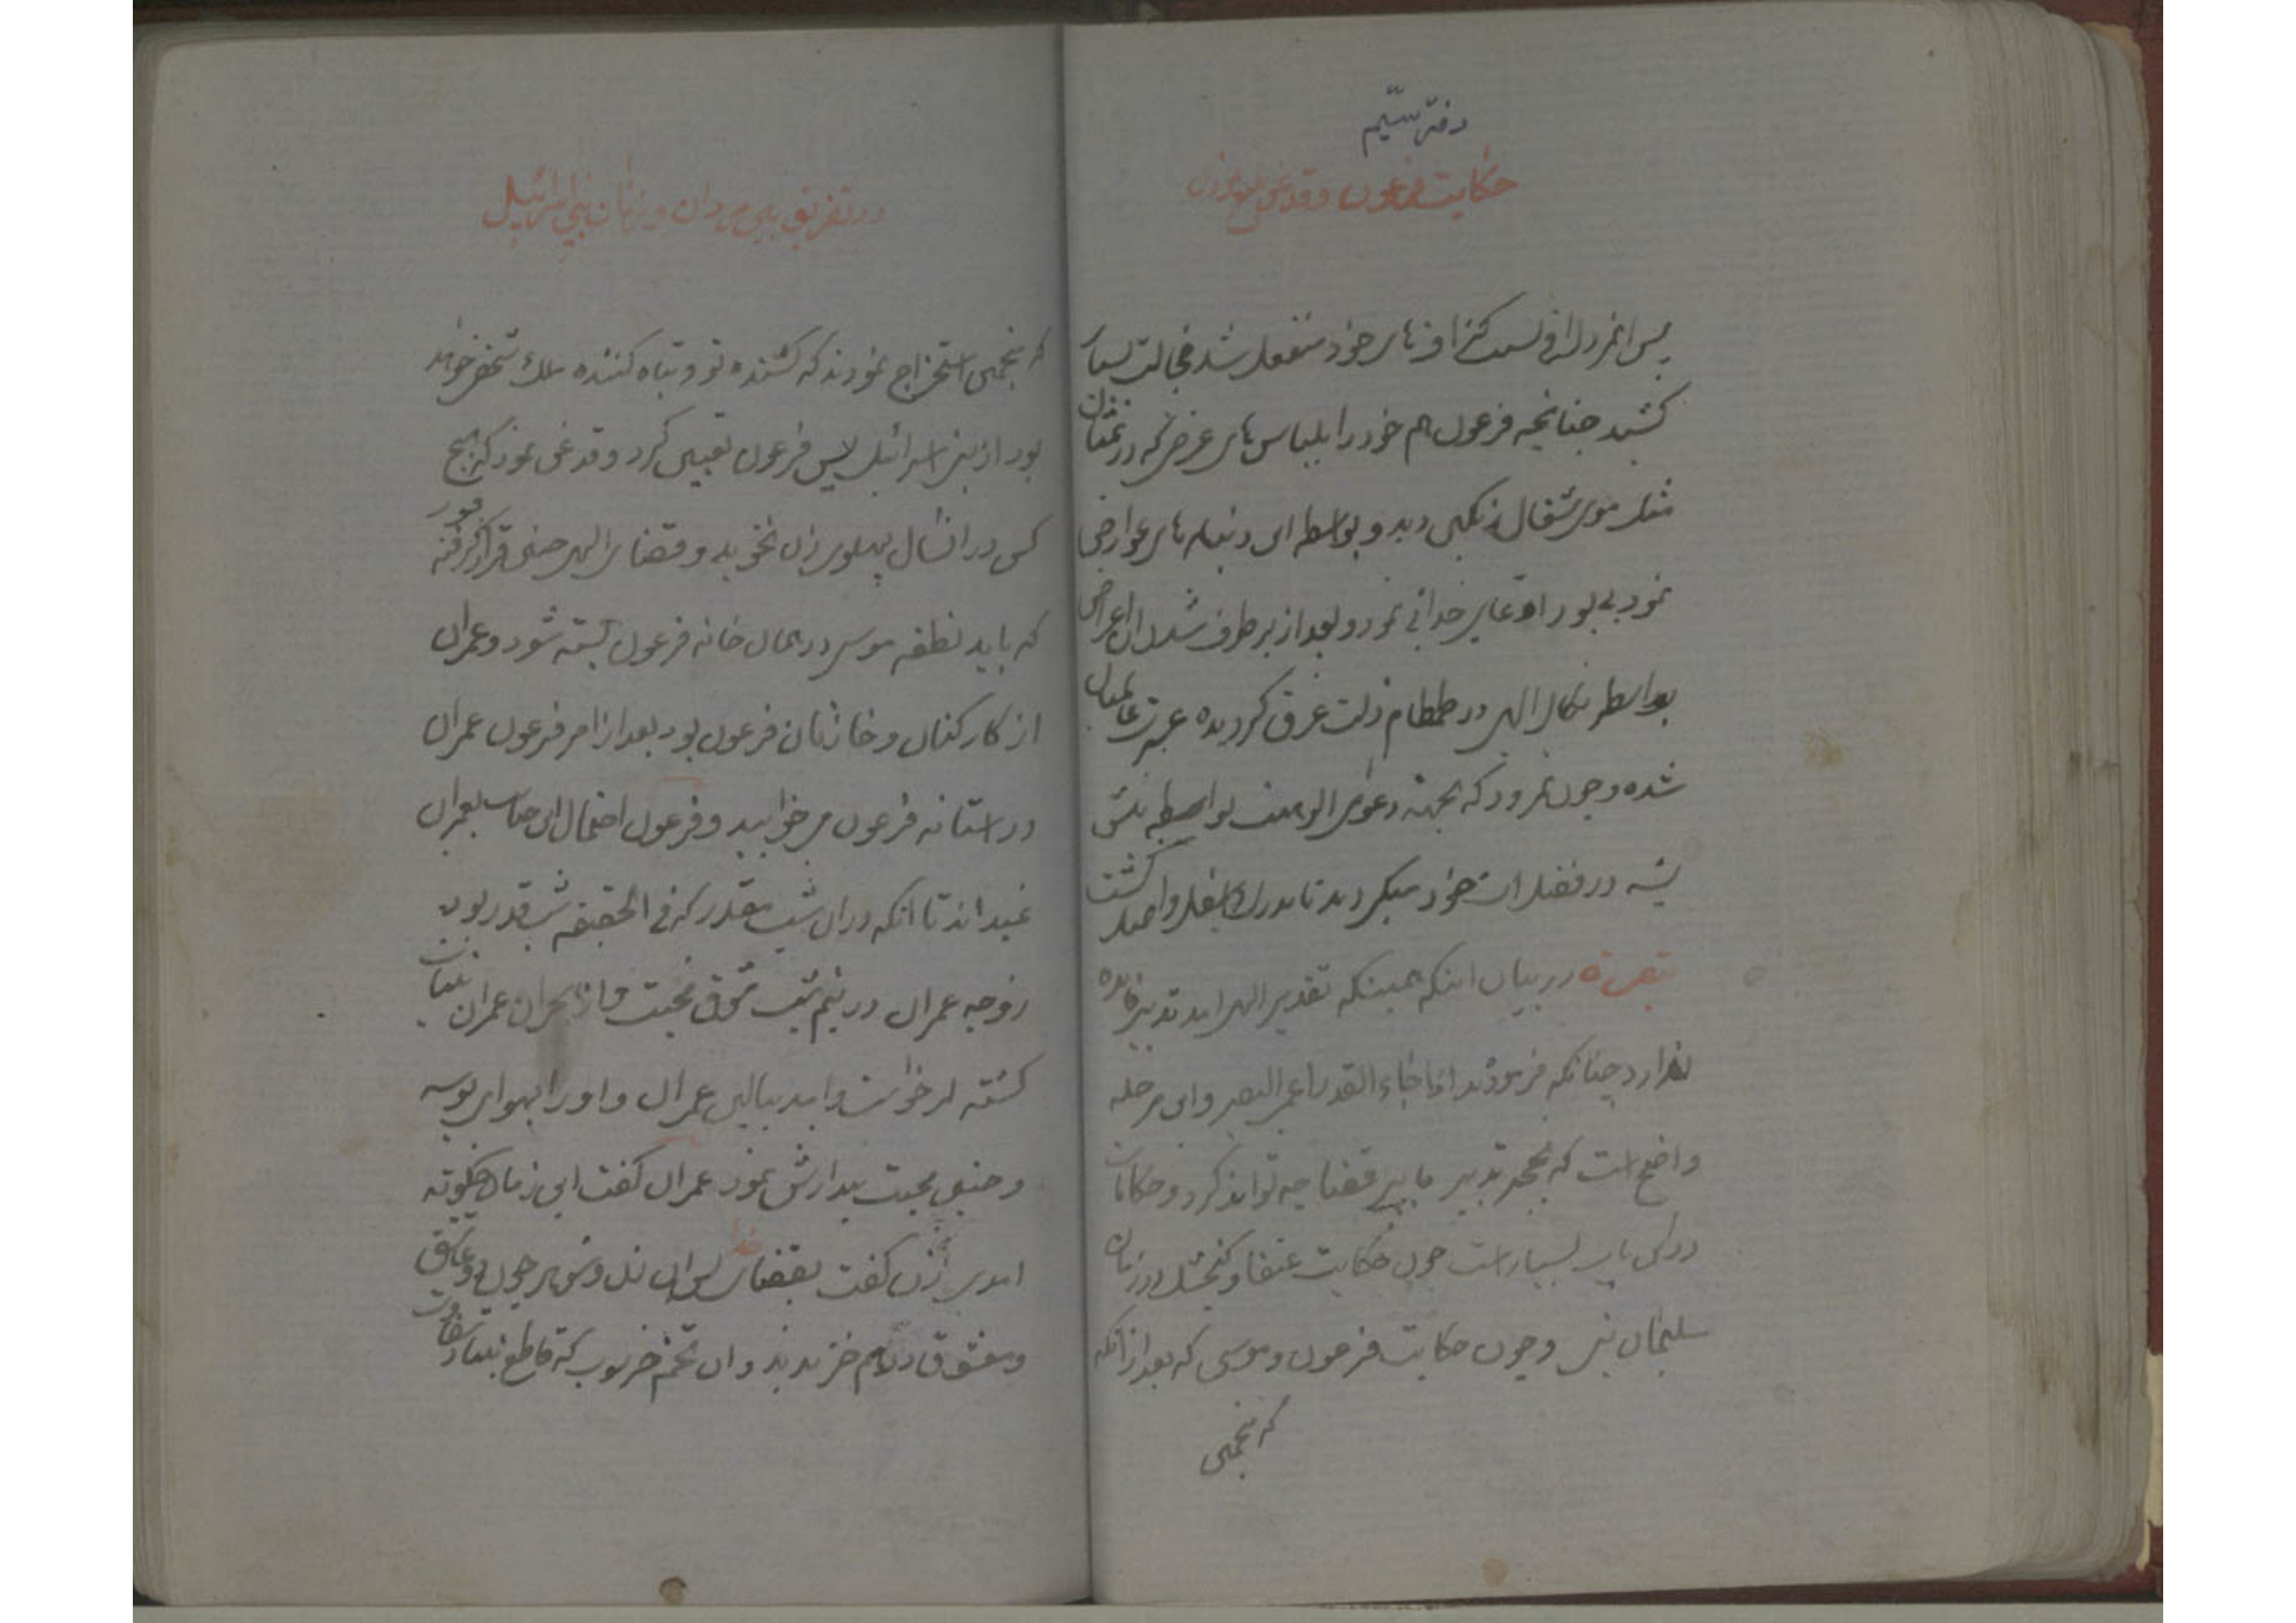 دفتر سیم
حکایت فرعون و قدغن
پس انمرد لاف کزافهای خود منفعل شد خجالت بسیار
کشید چنانچه فرعون هم خود را بلباس های عرضی که در
مثل موی شغال رنگین دید و بواسطه این دنیاهای عوارضی
نمود بی بود ادعای خدائی نمود و بعد از برطرف شدن آن اعراض
بواسطه نکال الهی در طمطام ذلت غرق گردیده عبرت عالمیان
شده و چون نمرود که بجهته دعوی الوهیت بواسطه نیش
پشه در فضلات خود میگردید تا بدرک اسفل واصل گشت
تبصره در بیان اینکه همینکه تقدیر الهی امد تدبیر فایده
ندارد چنانکه فرمودند اذا جاء القدر اعمی البصر و این مرحله
واضح است که تدبیر ما بی قضا چه تواند کرد و حکایات
در این باب بسیار است چون حکایت عنقا و در زمان
سلیمان نبی و چون حکایت فرعون و موسی که بعد از آنکه
که منجمین
در تفریق بین مردان و زنان بنی اسرائیل
که منجمین استخراج نمودند که کشنده تو و تباه کننده ملک شخصی خواهد
بود از بنی اسرائیل پس فرعون تعیین کرد و قدغن نمود که هیچ
کس در انسال پهلوی زن نخوبد و قضای الهی چنین قرار گرفته بود
که باید نطفه موسی در همان خانه فرعون بسته شود و عمران
از کارکنان و خازنان فرعون بود بعد از امر فرعون عمران
در استانه فرعون می خوابید و فرعون احتمال این حساب بعمران
نمیداند تا انکه در ان شب مقدر که فی الحقیقه شب قدر بود
زوجه عمران در نیم شب شوق محبت و از هجران عمران بیتاب
کشته برخواست و امد ببالین عمران و او را بهوای بوسه
و جنبش محبت بیدارش نمود عمران گفت این زمان چگونه
امدی زن گفت بقضای خدا پس ان زن و شوهر چون دو عاشق
و معشوق در هم خزیدند و ان تخم خروب که قاطع بنیاد